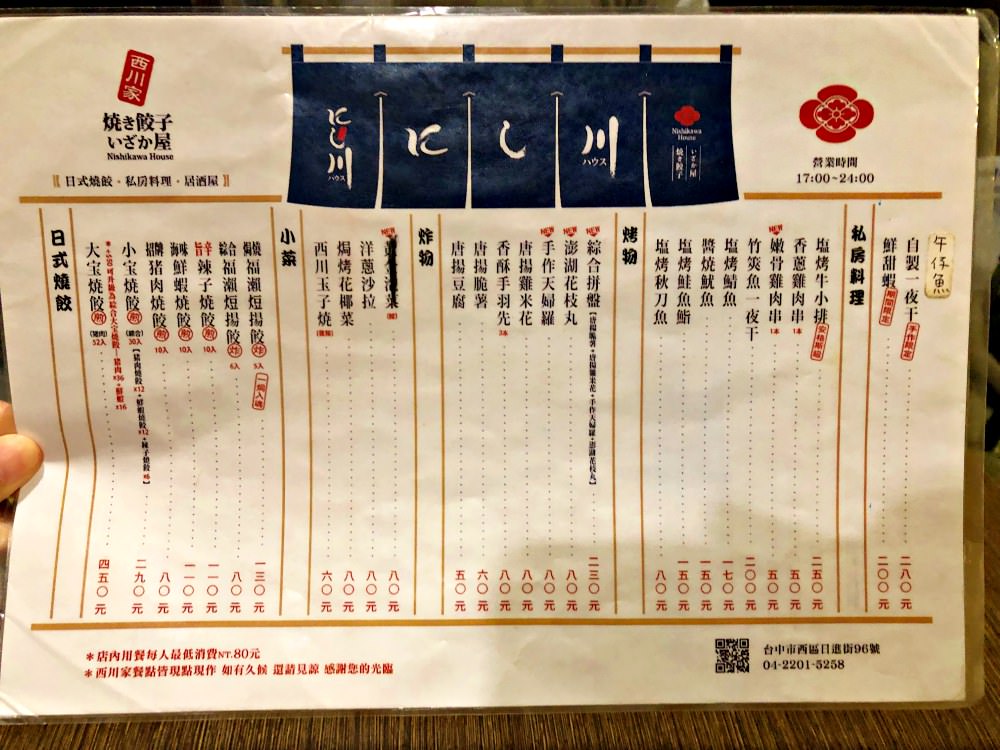 西川家
焼き餃子
いざか屋
Nishikawa House
〖日式燒餃・私房料理・居酒屋〗
にし川
ハウス
に
し
川
ハウス
Nishikawa
House
いざか屋
焼き餃子
營業時間
17:00~24:00
午仔魚
私房料理
自製一夜干 手作限定 二八〇元
鮮甜蝦 期間限定 二〇〇元
烤物
塩烤牛小排 安格斯級 二五〇元
香蔥雞肉串 1本 五〇元
NEW 嫩骨雞肉串 1本 五〇元
竹筴魚一夜干 二〇〇元
塩烤鯖魚 一七〇元
醬燒魷魚 一五〇元
塩烤鮭魚鮨 一五〇元
塩烤秋刀魚 八〇元
炸物
NEW 綜合拼盤【唐揚脆薯・唐揚雞米花・手作天婦羅・澎湖花枝丸】 二三〇元
NEW 澎湖花枝丸 八〇元
NEW 手作天婦羅 八〇元
香酥手羽先 3本 八〇元
唐揚雞米花 八〇元
唐揚脆薯 六〇元
唐揚豆腐 五〇元
小菜
八〇元
洋蔥沙拉 八〇元
焗烤花椰菜 八〇元
西川玉子燒 六〇元
日式燒餃
焗燒福瀨短揚餃 炸 5入 一焗入魂 一三〇元
綜合福瀨短揚餃 炸 6入 八〇元
辛旨辣子燒餃 煎 10入 一一〇元
海味鮮蝦燒餃 煎 10入 一一〇元
招牌豬肉燒餃 煎 10入 八〇元
小宝燒餃 煎 (綜合) 30入【豬肉燒餃x12・鮮蝦燒餃x12・辣子燒餃x6】 二九〇元
*+50可升級為綜合大宝燒餃—豬肉x36・鮮蝦x16
大宝燒餃 煎 (豬肉) 52入 四五〇元
*店內用餐每人最低消費NT.80元
*西川家餐點皆現點現作 如有久候 還請見諒 感謝您的光臨
台中市西區日進街96號
04-2201-5258